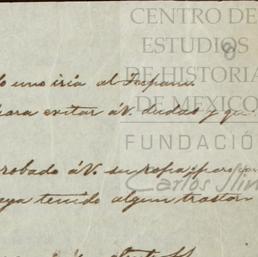 CENTRO DE
ESTUDIOS
8
DE HISTORIA
DE MEXICO
FUNDACIÓ
Carlos Slim
uno iria al
para evitar á V. dudas y qu
robado á V. su
aya tenido algun trastor